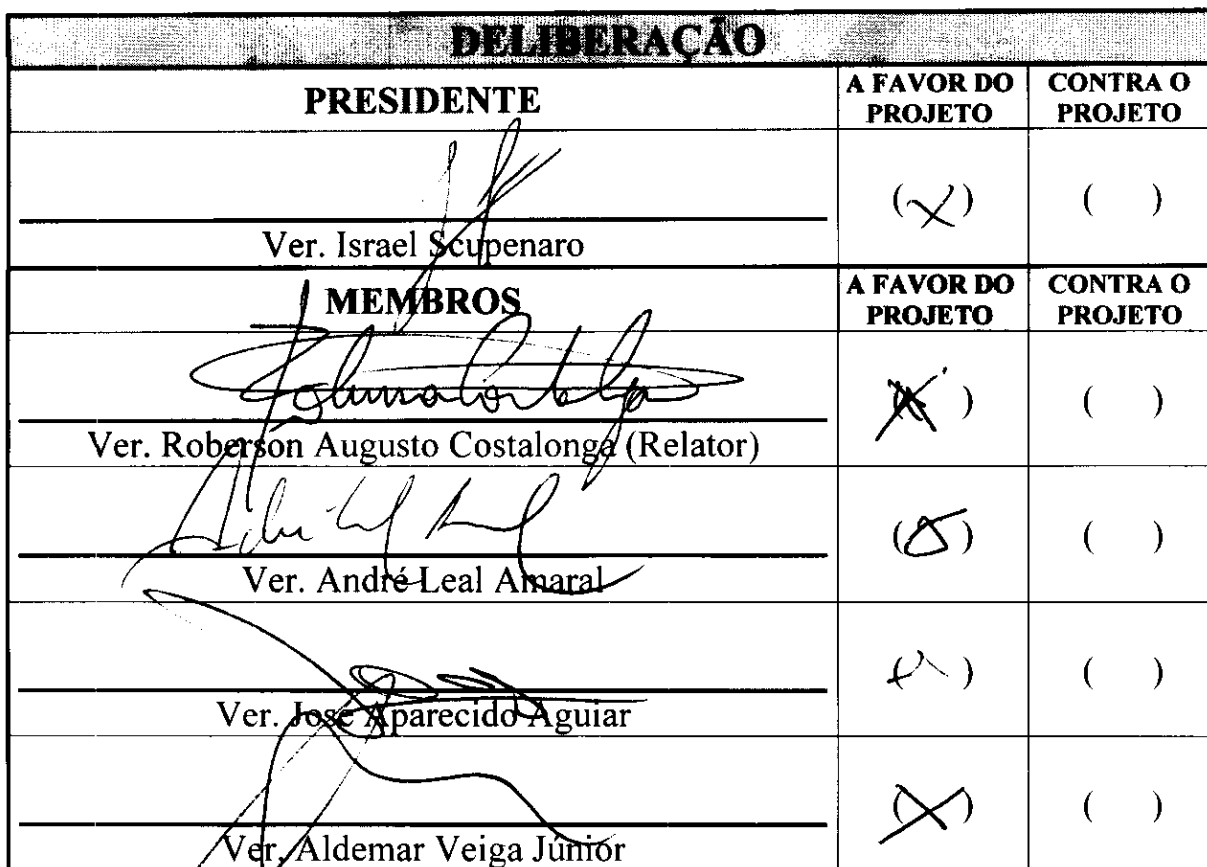 DELIBERAÇÃO
PRESIDENTE
A FAVOR DO PROJETO
CONTRA O PROJETO
(X)
( )
Ver. Israel Scupenaro
MEMBROS
A FAVOR DO PROJETO
CONTRA O PROJETO
(X)
( )
Ver. Roberson Augusto Costalonga (Relator)
( )
Ver. André Leal Amaral
( )
Ver. José Aparecido Aguiar
(X)
( )
Ver. Aldemar Veiga Júnior